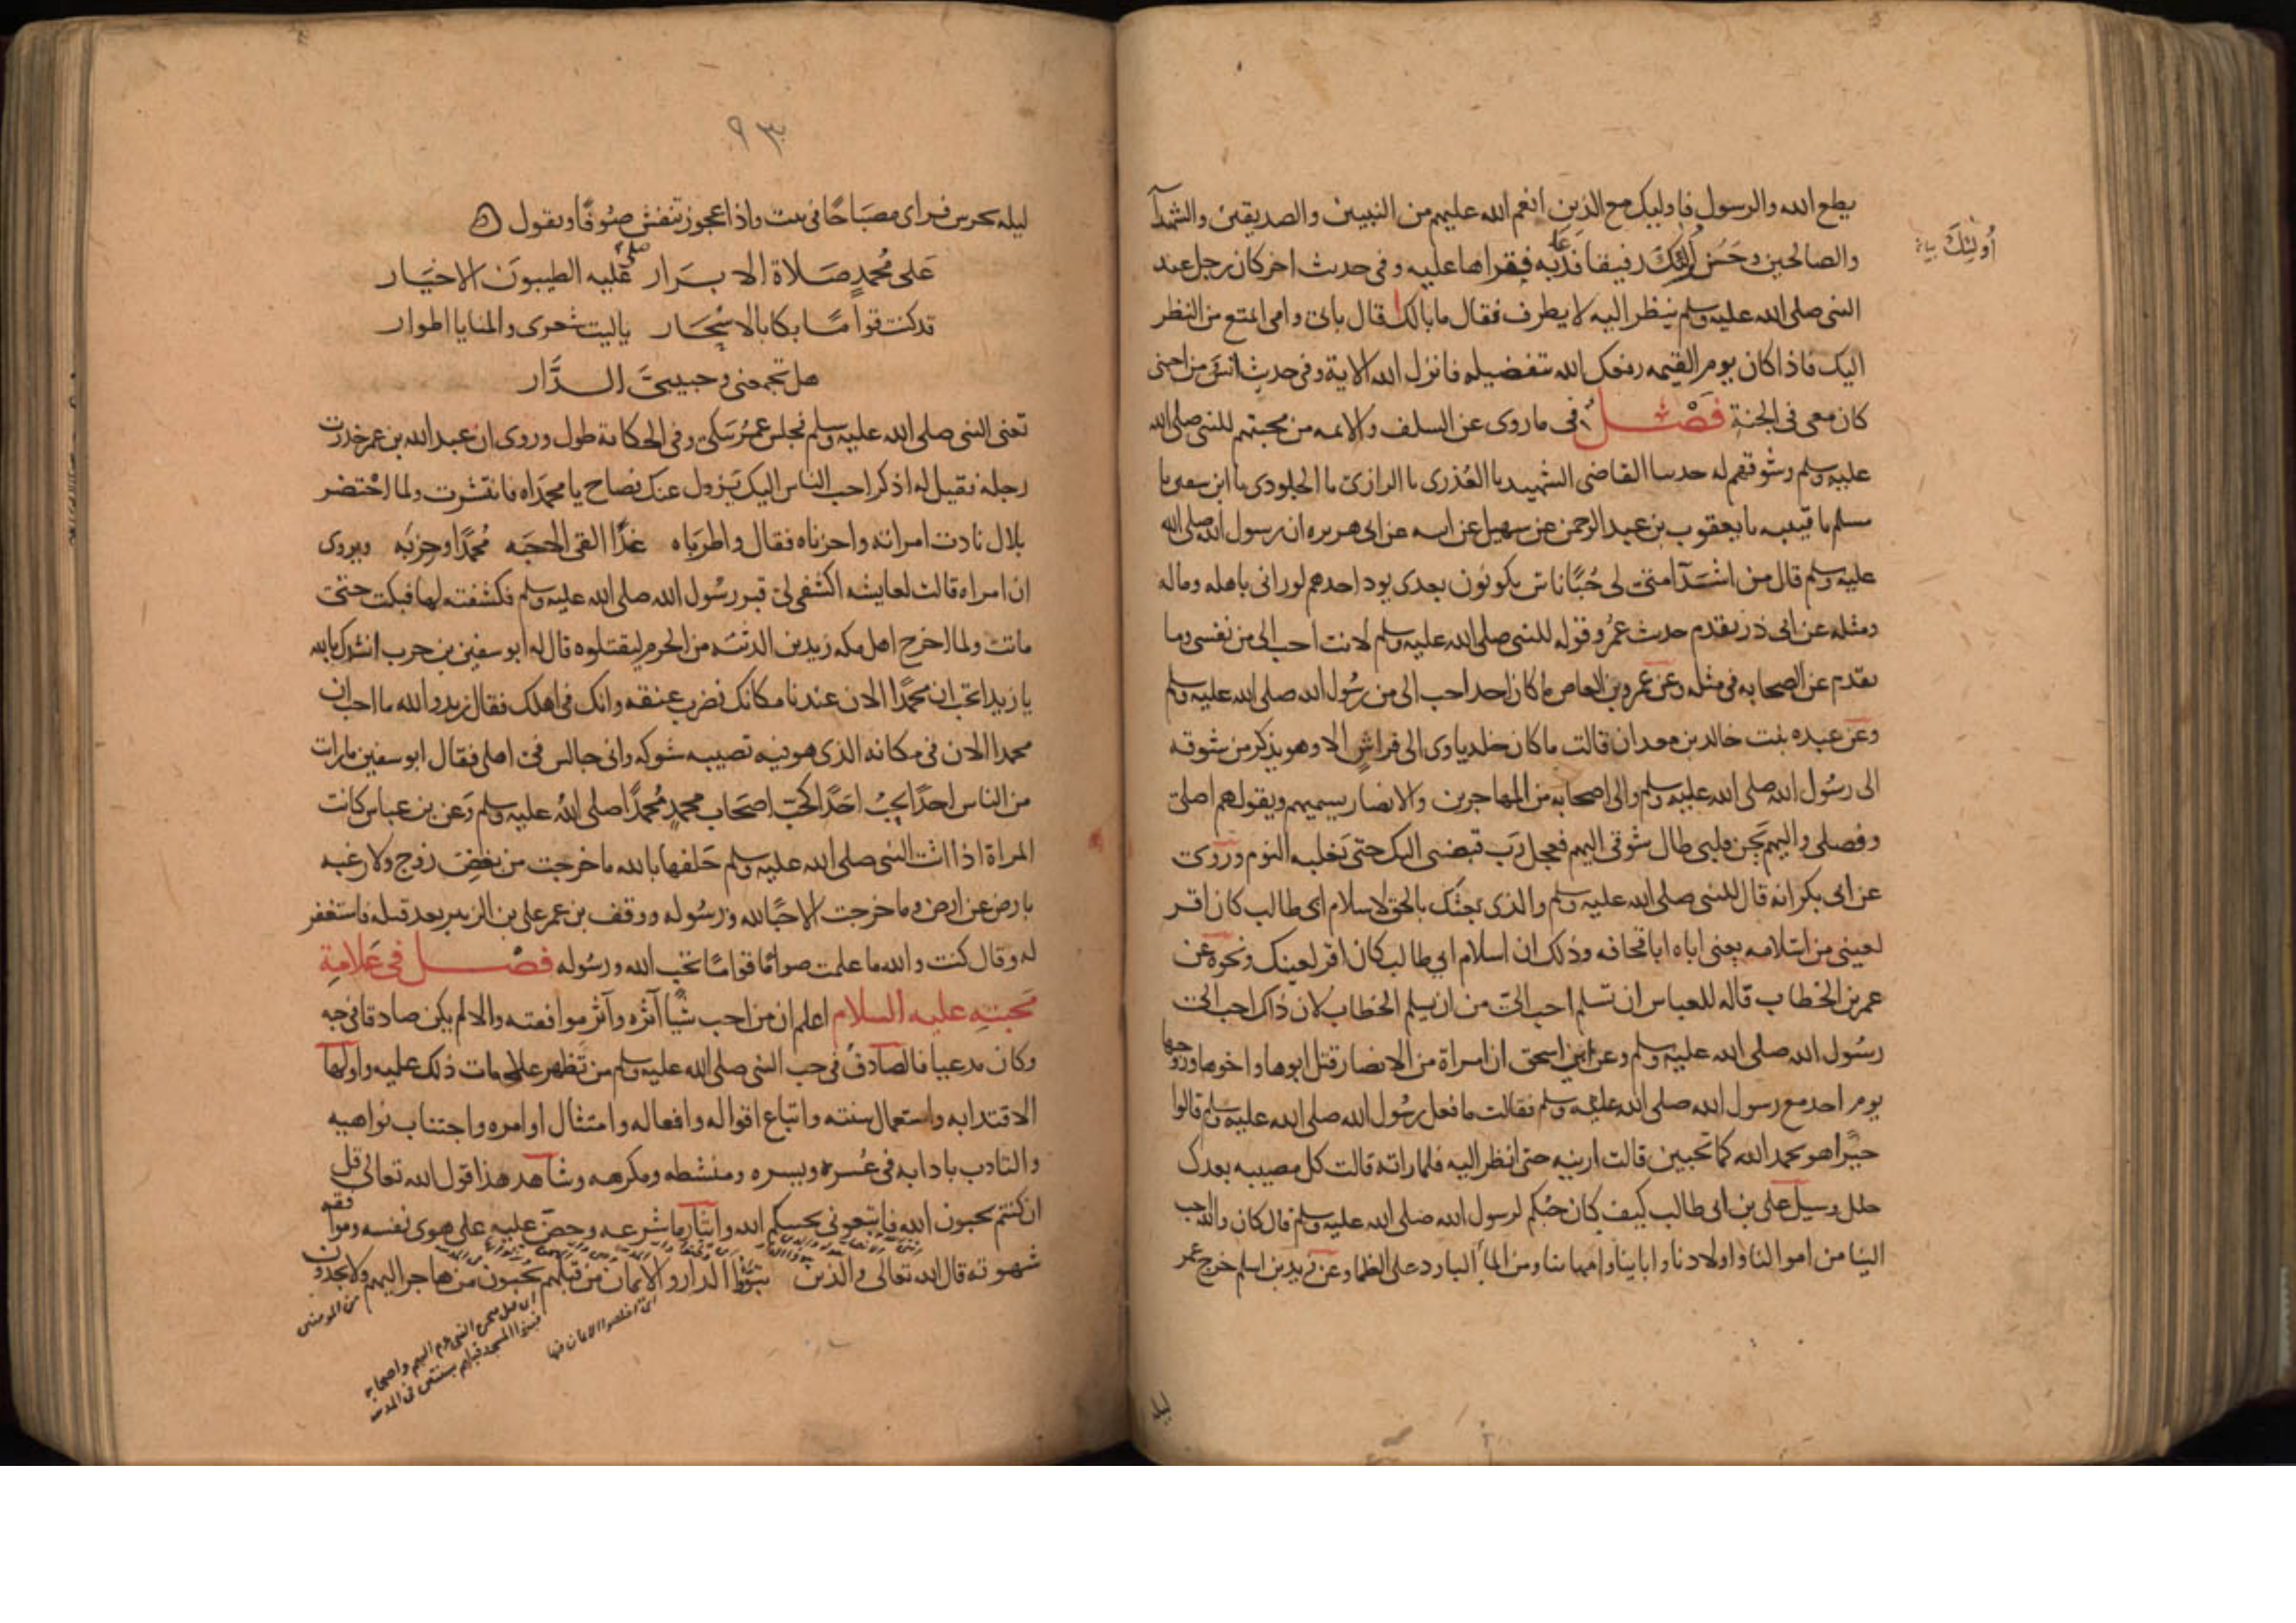 يطع الله والرسول فاوليك مع الذين انعم الله عليهم من النبيين والصديقين والشهدآ
والصالحين وحسن اولئك رفيقا فدعا به فقراها عليه وفي حديث اخر كان رجل عند
أولئك
النبي صلى الله عليه وسلم ينظر اليه لا يطرف فقال ما بالك قال بابي وامي اتمتع من النظر
اليك فاذا كان يوم القيمه رفعك الله بتفضيله فانزل الله الاية وفي حديث انس من احبني
كان معي في الجنة فصل في ما روي عن السلف والايمه من محبتهم للنبي صلى الله
عليه وسلم وشوقهم له حدسا القاضي الشهيد با العذري با الرازي با الجلودي با ابن سفين با
مسلم با قتيبه با يعقوب بن عبد الرحمن عن سهيل عن ابيه عن ابي هريره ان رسول الله صلى الله
عليه وسلم قال من اشد امتي لي حبا ناس يكونون بعدي يود احدهم لو راني باهله وماله
ومثله عن ابي ذر تقدم حديث عمر وقوله للنبي صلى الله عليه وسلم لانت احب الي من نفسي وما
تقدم عن الصحابه في مثله وعن عمرو بن العاص ما كان احد احب الي من رسول الله صلى الله عليه وسلم
وعن عبده بنت خالد بن معدان قالت ما كان خلد ياوي الى فراش الا وهو يذكر من شوقه
الى رسول الله صلى الله عليه وسلم والى اصحابه من المهاجرين والانصار يسميهم ويقول هم اصلي
وفصلي واليهم يحن قلبي طال شوقي اليهم فعجل رب قبضي اليك حتى يغلبه النوم وروي
عن ابي بكر انه قال للنبي صلى الله عليه وسلم والذي بعثك بالحق لاسلام ابي طالب كان اقر
لعيني من اسلامه يعني اباه ابا قحافه وذلك ان اسلام ابي طالب كان اقر لعينك ونحوه عن
عمر بن الخطاب قاله للعباس ان تسلم احب الي من ان يسلم الخطاب لان ذاك احب الى
رسول الله صلى الله عليه وسلم وعن ابن اسحق ان امراة من الانصار قتل ابوها واخوها وزوجها
يوم احد مع رسول الله صلى الله عليه وسلم فقالت ما فعل رسول الله صلى الله عليه وسلم قالوا
خيرا هو بحمد الله كما تحبين قالت ارينيه حتى انظر اليه فلما راته قالت كل مصيبه بعدك
جلل وسيل علي بن ابي طالب كيف كان حبكم لرسول الله صلى الله عليه وسلم قال كان والله احب
الينا من اموالنا واولادنا وابائنا وامهاتنا ومن الماء البارد على الظما وعن زيد بن اسلم خرج عمر
ليله
٩٣
ليله يحرس فراى مصباحا في بيت واذا عجوز تنفش صوفا وتقول
على محمد صلاة الابرار صلى عليه الطيبون الاخيار
قد كنت قواما بكا بالاسحار ياليت شعري والمنايا اطوار
هل تجمعني وحبيبي الدار
تعني النبي صلى الله عليه وسلم فجلس عمر يبكي وفي الحكاية طول وروي ان عبد الله بن عمر خدرت
رجله فقيل له اذكر احب الناس اليك يزول عنك فصاح يا محمداه فانتشرت ولما احتضر
بلال نادت امراته واحزناه فقال واطرباه غدا القى الاحبه محمدا وحزبه ويروى
ان امراه قالت لعايشه اكشفي لي قبر رسول الله صلى الله عليه وسلم فكشفته لها فبكت حتى
ماتت ولما اخرج اهل مكه زيد بن الدثنه من الحرم ليقتلوه قال له ابو سفين بن حرب انشدك بالله
يا زيد اتحب ان محمدا الان عندنا مكانك نضرب عنقه وانك في اهلك فقال زيد والله ما احب ان
محمدا الان في مكانه الذي هو فيه تصيبه شوكه واني جالس في اهلي فقال ابو سفين ما رايت
من الناس احدا يحب احدا كحب اصحاب محمد محمدا صلى الله عليه وسلم وعن بن عباس كانت
المراة اذا اتت النبي صلى الله عليه وسلم حلفها بالله ما خرجت من بغض زوج ولا رغبه
بارض عن ارض وما خرجت الا حبا لله ورسوله ووقف بن عمر على بن الزبير بعد قتله فاستغفر
له وقال كنت والله ما علمت صواما قواما تحب الله ورسوله فصل في علامة
محبته عليه السلام اعلم ان من احب شيا آثره وآثر موافقته والا لم يكن صادقا في حبه
وكان مدعيا فالصادق في حب النبي صلى الله عليه وسلم من تظهر علامات ذلك عليه واولها
الاقتدا به واستعمال سنته واتباع اقواله وافعاله وامتثال اوامره واجتناب نواهيه
والتادب بادابه في عسره ويسره ومنشطه ومكرهه وشاهد هذا قول الله تعالى قل
ان كنتم تحبون الله فاتبعوني يحببكم الله وايثار ما شرعه وحض عليه على هوى نفسه وموافقه
شهوته قال الله تعالى والذين تبوؤا الدار والايمان من قبلهم يحبون من هاجر اليهم ولا يجدون
من المومنين